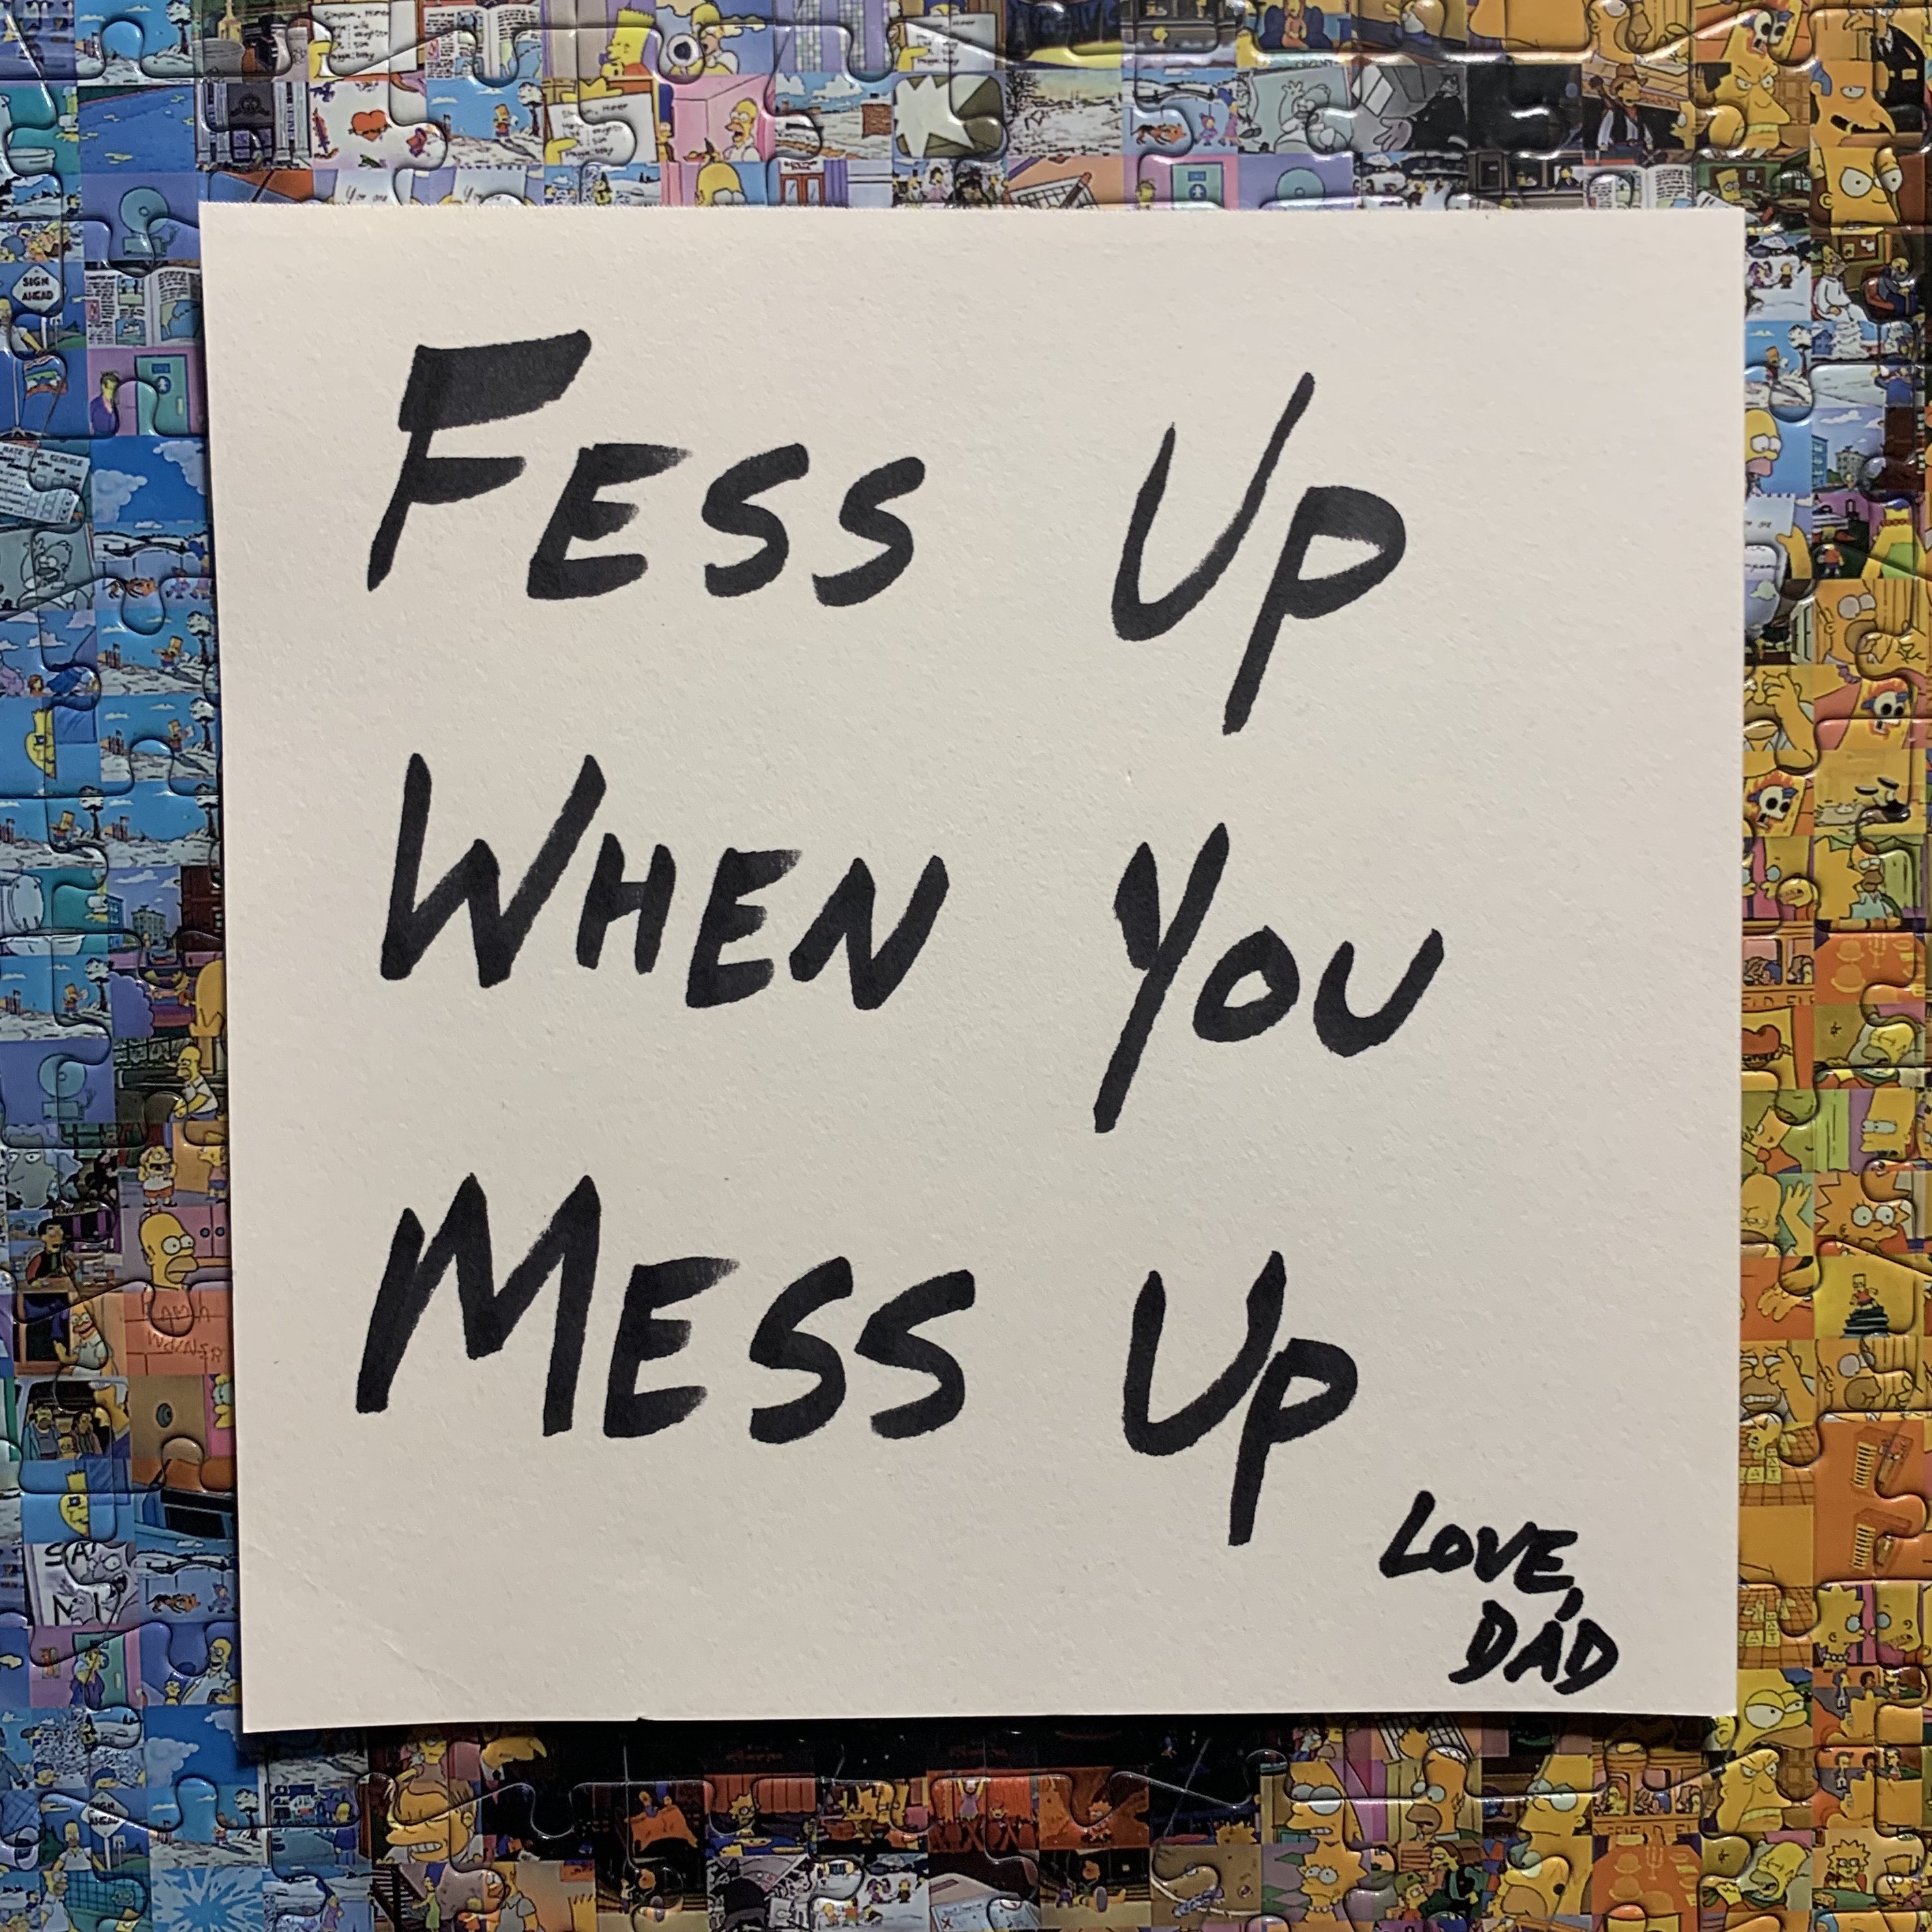 FESS UP
WHEN YOU
MESS UP
LOVE,
DAD
SIGN
AHEAD